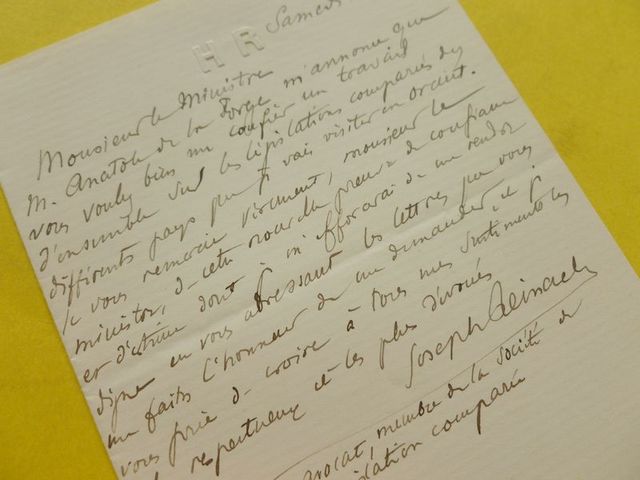 H R
Samedi
Monsieur le Ministre
M. Anatole de la Forge m'annonce que
vous voulez bien me confier un travail
d'ensemble sur les législations comparées des
différents pays que je vais visiter en Orient.
Je vous remercie vivement, monsieur le
ministre, de cette nouvelle preuve de confiance
et d'estime dont je m'efforcerai de me rendre
digne en vous adressant les lettres que vous
me faites l'honneur de me demander, et je
vous prie de croire à tous mes sentiments les
respectueux et les plus dévoués
Joseph Reinach
avocat, membre de la Société de
législation comparée